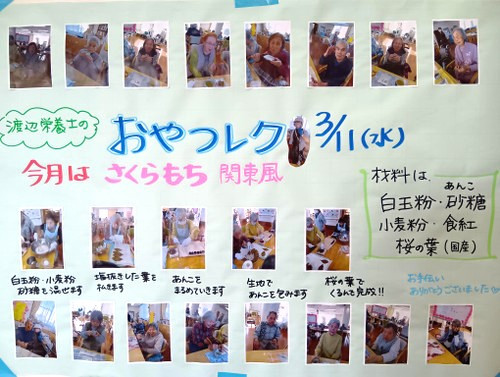 渡辺栄養士の
おやつレク 3/11(水)
今月は さくらもち 関東風
材料は、
あんこ
白玉粉・砂糖
小麦粉・食紅
桜の葉(国産)
白玉粉・小麦粉
砂糖を混ぜます
塩抜きした葉を
ふきます
あんこを
まるめていきます
生地で
あんこを包みます
桜の葉で
くるんで完成!!
お手伝い
ありがとうございました